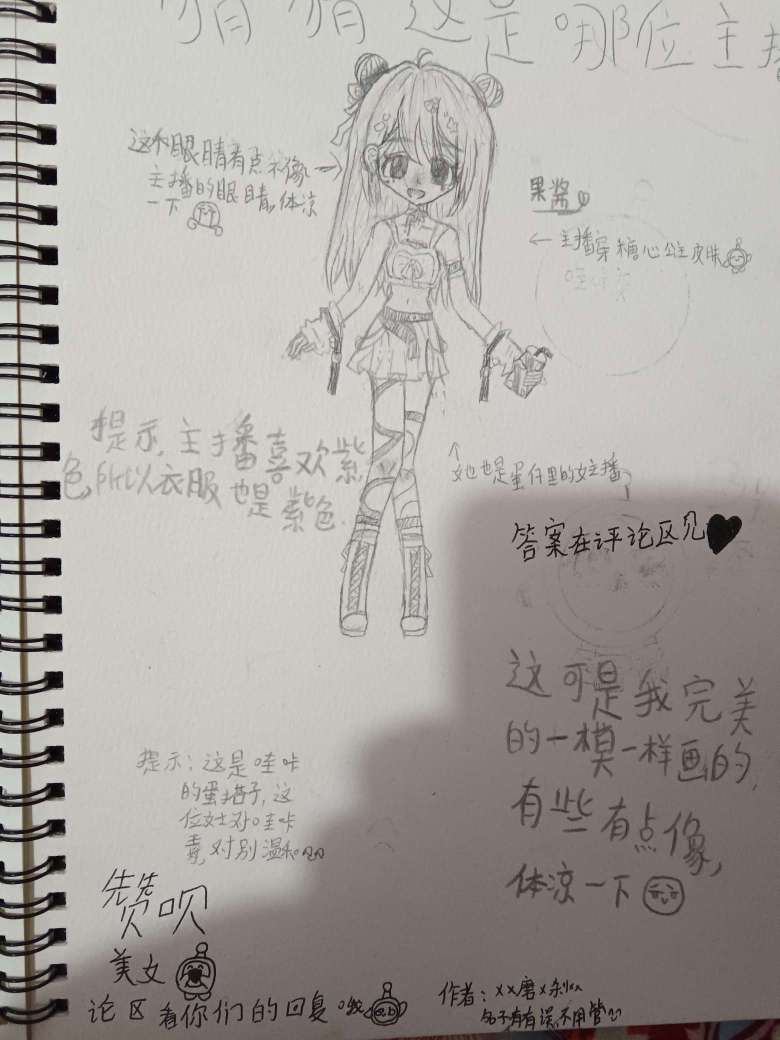 猜猜这是哪位主播
这个眼睛有点不像
主播的眼睛,体凉
一下
果酱
←主播穿糖心公主皮肤
提示,主播喜欢紫
色,所以衣服也是紫色.
她也是蛋仔里的女主播
答案在评论区见
这可是我完美
的一模一样画的,
有些有点像,
体凉一下
提示:这是哇咔
的蛋搭子,这
位女士对哇咔
毒,对别温和
赞呗
美女
论区看你们的回复
作者:xx磨x刹xx
名子有有误,不用管